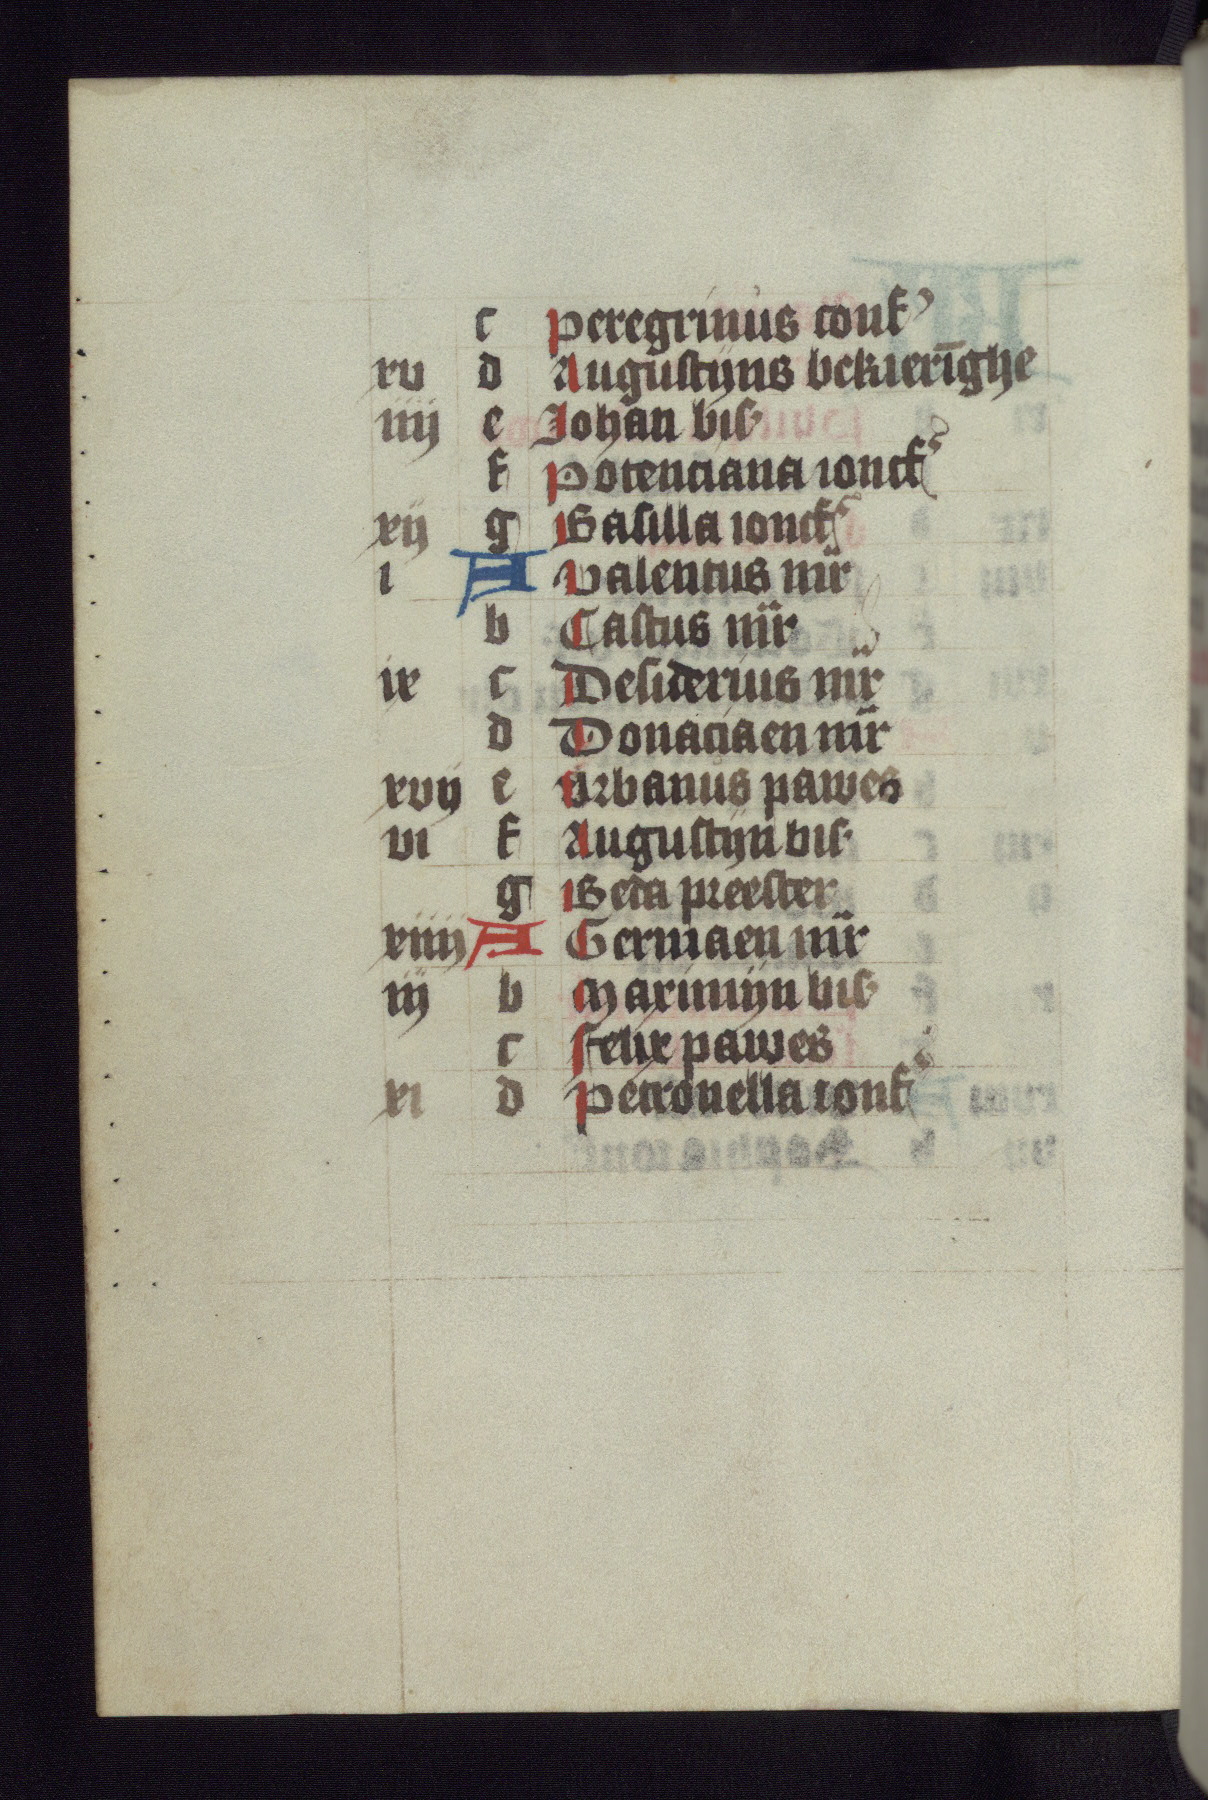 c Peregrinus conf
xv d Augustijns bekierīghe
iiij e Johan bis
f Potenciana ioncf
xij g Basilla ioncf
i A Valentus mr̄
b Castus mr̄
ix c Desiderius mr̄
d Donaciaen mr̄
xvij e Urbanus pawes
vi f Augustijn bis
g Beda preester
xiiij A Germaen mr̄
iij b Maximijn bis
c Felix pawes
xi d Petronella ionf